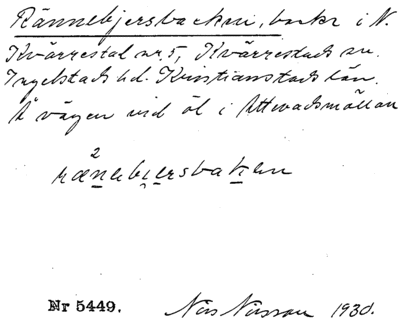 Rännebjersbacken, backe i N.
Kvärrestad nr. 5, Kvärrestads sn.
Ingelstads hd. Kristianstads län.
Å vägen vid öl i Attvadsmöllan
²
rænebjersbaken
Nr 5449. Nils Nilsson 1930.